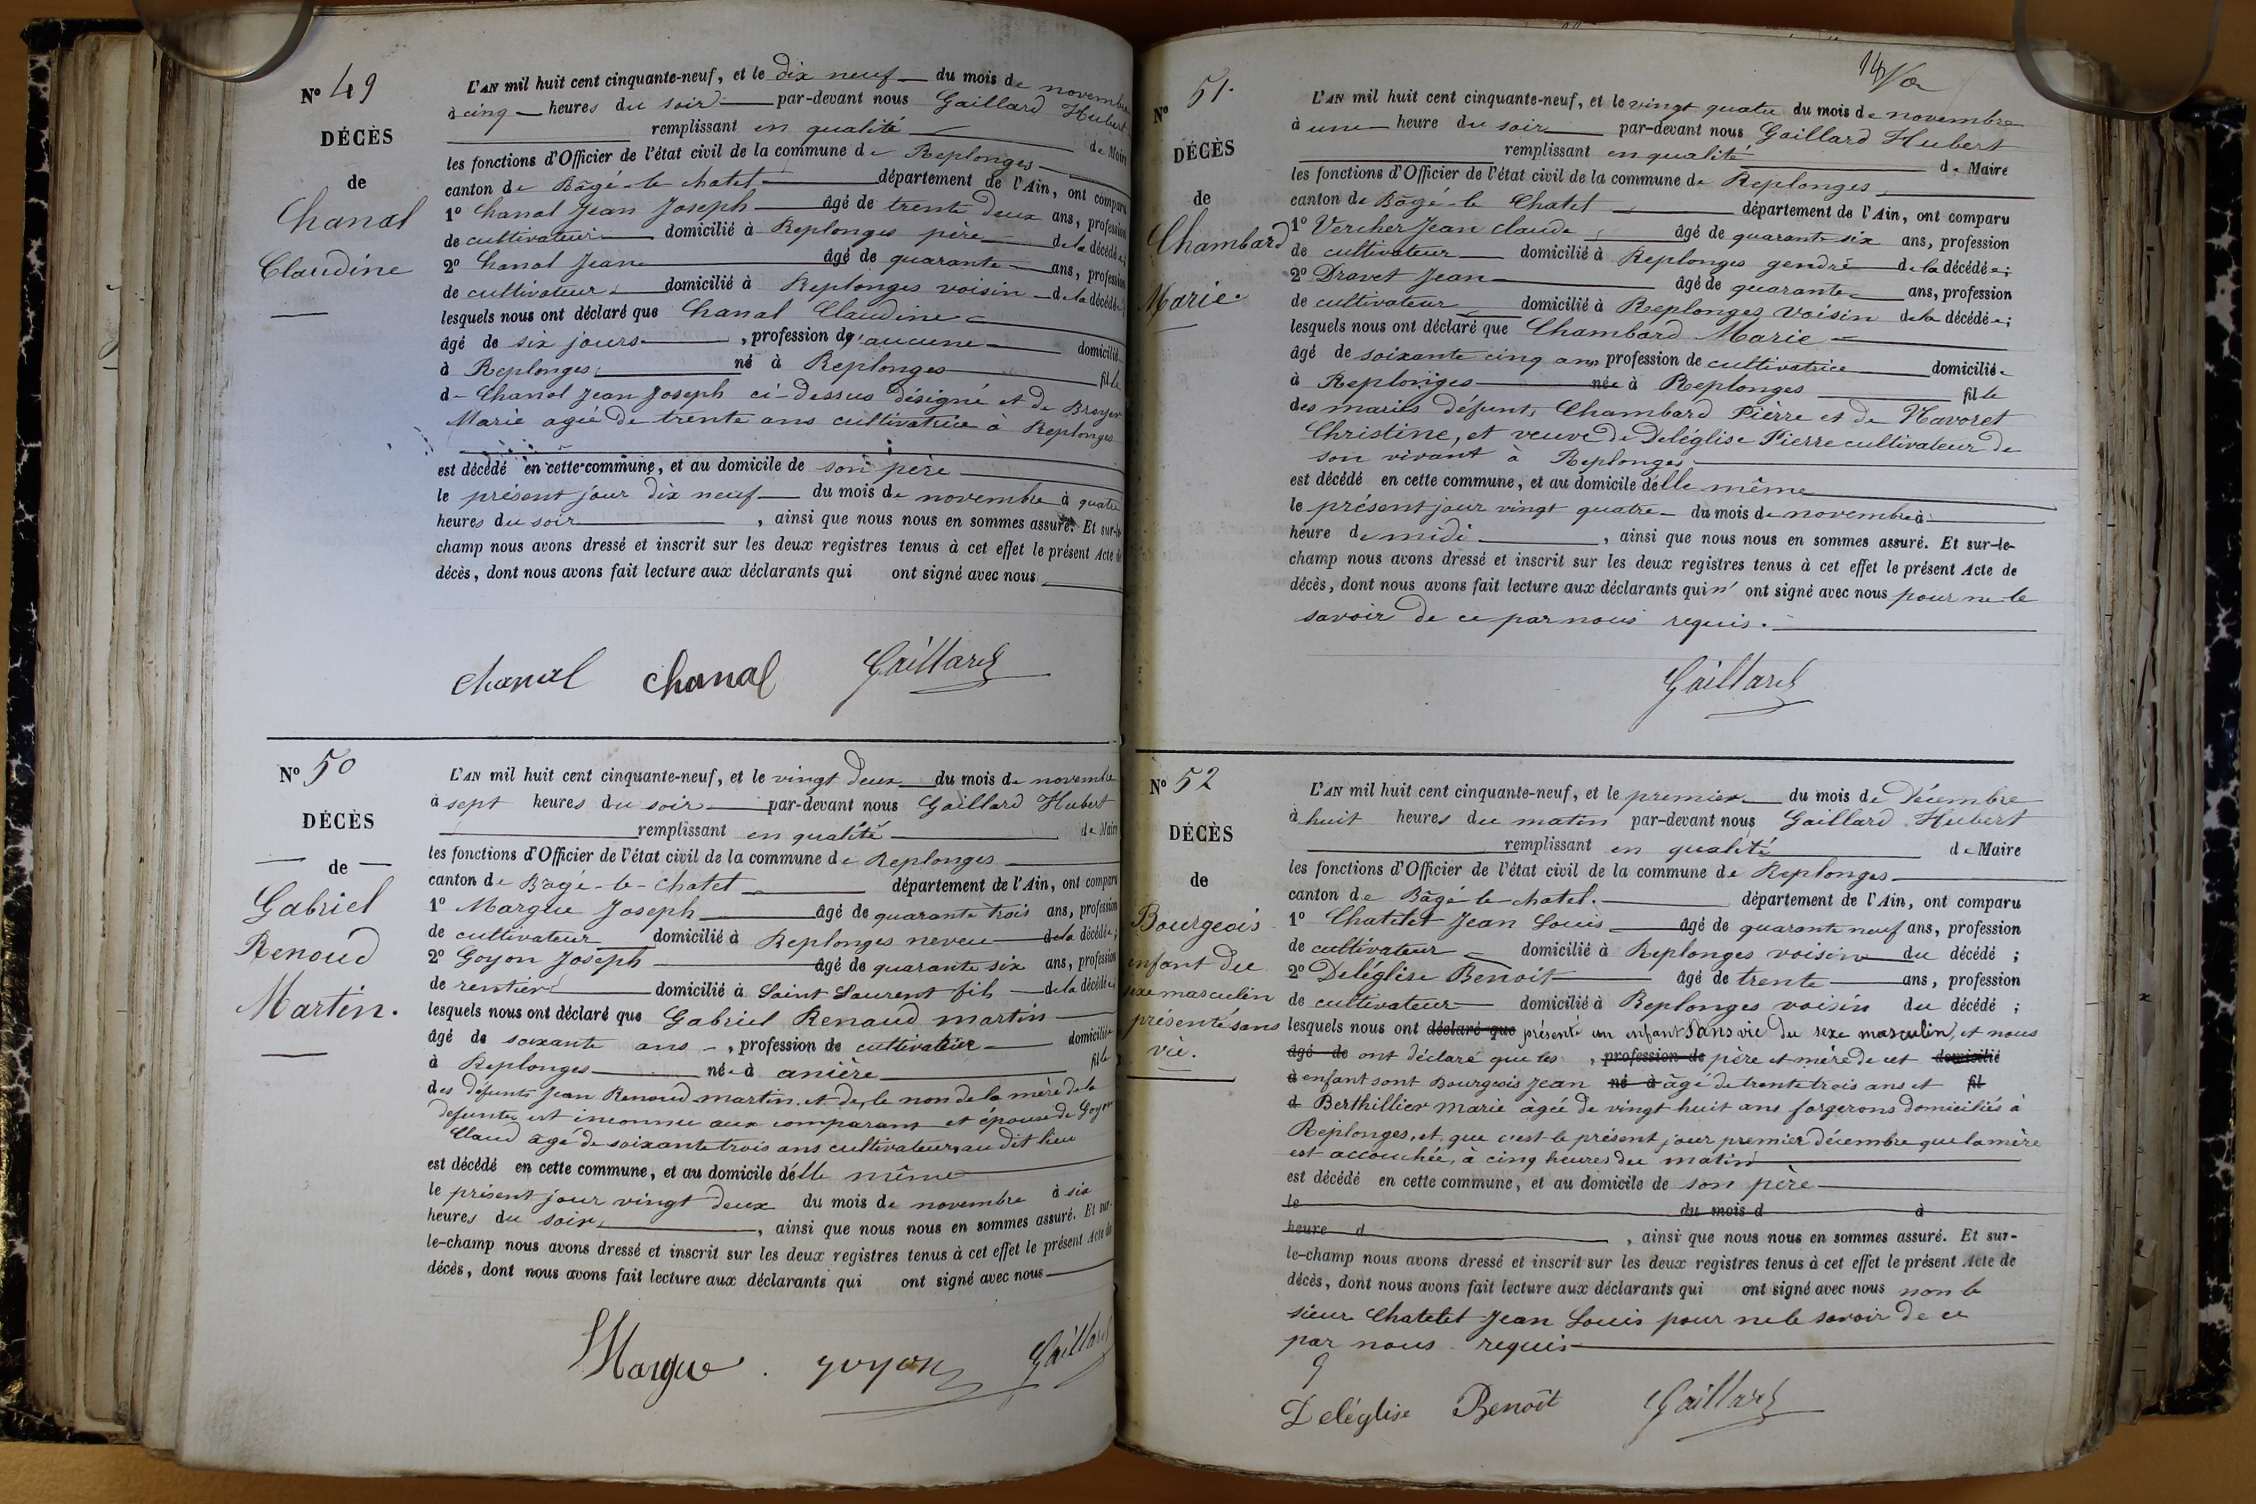 N° 49
DÉCÈS
de
Chanal
Claudine
L'AN mil huit cent cinquante-neuf, et le dix neuf du mois de novembre
à cinq heures du soir par-devant nous Gaillard Hubert
remplissant en qualité de Maire
les fonctions d'Officier de l'état civil de la commune de Replonges
canton de Bâgé-le-chatel département de l'Ain, ont comparu
1° Chanal Jean Joseph âgé de trente deux ans, profession
de cultivateur domicilié à Replonges père de la décédée;
2° Chanal Jean âgé de quarante ans, profession
de cultivateur domicilié à Replonges voisin de la décédée
lesquels nous ont déclaré que Chanal Claudine
âgé de six jours, profession d'aucune domicilié
à Replonges né à Replonges fille
de Chanal Jean Joseph ci-dessus désigné et de Broyer
Marie agée de trente ans cultivatrice à Replonges
est décédé en cette commune, et au domicile de son père
le présent jour dix neuf du mois de novembre à quatre
heures du soir, ainsi que nous nous en sommes assuré. Et sur-le-
champ nous avons dressé et inscrit sur les deux registres tenus à cet effet le présent Acte de
décès, dont nous avons fait lecture aux déclarants qui ont signé avec nous
Chanal chanal Gaillard
N° 50
DÉCÈS
de
Gabriel
Renoud
Martin.
L'AN mil huit cent cinquante-neuf, et le vingt deux du mois de novembre
à sept heures du soir par-devant nous Gaillard Hubert
remplissant en qualité de Maire
les fonctions d'Officier de l'état civil de la commune de Replonges
canton de Bagé-le-chatel département de l'Ain, ont comparu
1° Margue Joseph âgé de quarante trois ans, profession
de cultivateur domicilié à Replonges neveu de la décédée;
2° Goyon Joseph âgé de quarante six ans, profession
de rentier domicilié à Saint Laurent fils de la décédée
lesquels nous ont déclaré que Gabriel Renaud martin
âgé de soixante ans, profession de cultivateur domiciliée
à Replonges née à anière fille
des défunts Jean Renoud martin et de, le non de la mère de la
defunte est inconnu aux comparant et épouse de Goyon
Claud âgé de soixante trois ans cultivateur, au dit lieu
est décédé en cette commune, et au domicile d'elle même
le présent jour vingt deux du mois de novembre à six
heures du soir, ainsi que nous nous en sommes assuré. Et sur-
le-champ nous avons dressé et inscrit sur les deux registres tenus à cet effet le présent Acte de
décès, dont nous avons fait lecture aux déclarants qui ont signé avec nous
Margue. goyon Gaillard
N° 51.
DÉCÈS
de
Chambard
Marie.
L'AN mil huit cent cinquante-neuf, et le vingt quatre du mois de novembre
à une heure du soir par-devant nous Gaillard Hubert
remplissant en qualité de Maire
les fonctions d'Officier de l'état civil de la commune de Replonges
canton de Bâgé-le Chatel département de l'Ain, ont comparu
1° Vercher Jean claude âgé de quarante six ans, profession
de cultivateur domicilié à Replonges gendre de la décédée;
2° Dravet Jean âgé de quarante ans, profession
de cultivateur domicilié à Replonges voisin de la décédée;
lesquels nous ont déclaré que Chambard Marie
âgé de soixante cinq ans profession de cultivatrice domiciliée
à Replonges née à Replonges fille
des mariés défunts Chambard Pièrre et de Navoret
Christine, et veuve de Deléglise Pierre cultivateur de
son vivant à Replonges
est décédé en cette commune, et au domicile d'elle même
le présent jour vingt quatre du mois de novembre à
heure de midi, ainsi que nous nous en sommes assuré. Et sur-le-
champ nous avons dressé et inscrit sur les deux registres tenus à cet effet le présent Acte de
décès, dont nous avons fait lecture aux déclarants qui n'ont signé avec nous pour ne le
savoir de ce par nous requis.
Gaillard
N° 52
DÉCÈS
de
Bourgeois
enfant du
sexe masculin
présenté sans
vie.
L'AN mil huit cent cinquante-neuf, et le premier du mois de Décembre
à huit heures du matin par-devant nous Gaillard Hubert
remplissant en qualité de Maire
les fonctions d'Officier de l'état civil de la commune de Replonges
canton de Bâgé-le-chatel. département de l'Ain, ont comparu
1° Chatelet Jean Louis âgé de quarante neuf ans, profession
de cultivateur domicilié à Replonges voisin du décédé;
2° Deléglise Benoit âgé de trente ans, profession
de cultivateur domicilié à Replonges voisin du décédé;
lesquels nous ont déclaré que présenté un enfant sans vie du sexe masculin, et nous
âgé de ont déclaré que les, profession de père et mère de cet domicilié
à enfant sont Bourgeois Jean né à âgé de trente trois ans et fil
d Berthillier Marie âgée de vingt huit ans forgerons domiciliés à
Replonges, et que c'est le présent jour premier décembre que la mère
est accouchée, à cinq heures du matin
est décédé en cette commune, et au domicile de son père
le du mois d à
heure d, ainsi que nous nous en sommes assuré. Et sur-
le-champ nous avons dressé et inscrit sur les deux registres tenus à cet effet le présent Acte de
décès, dont nous avons fait lecture aux déclarants qui ont signé avec nous non le
sieur Chatelet Jean Louis pour ne le savoir de ce
par nous requis
Deléglise Benoît Gaillard